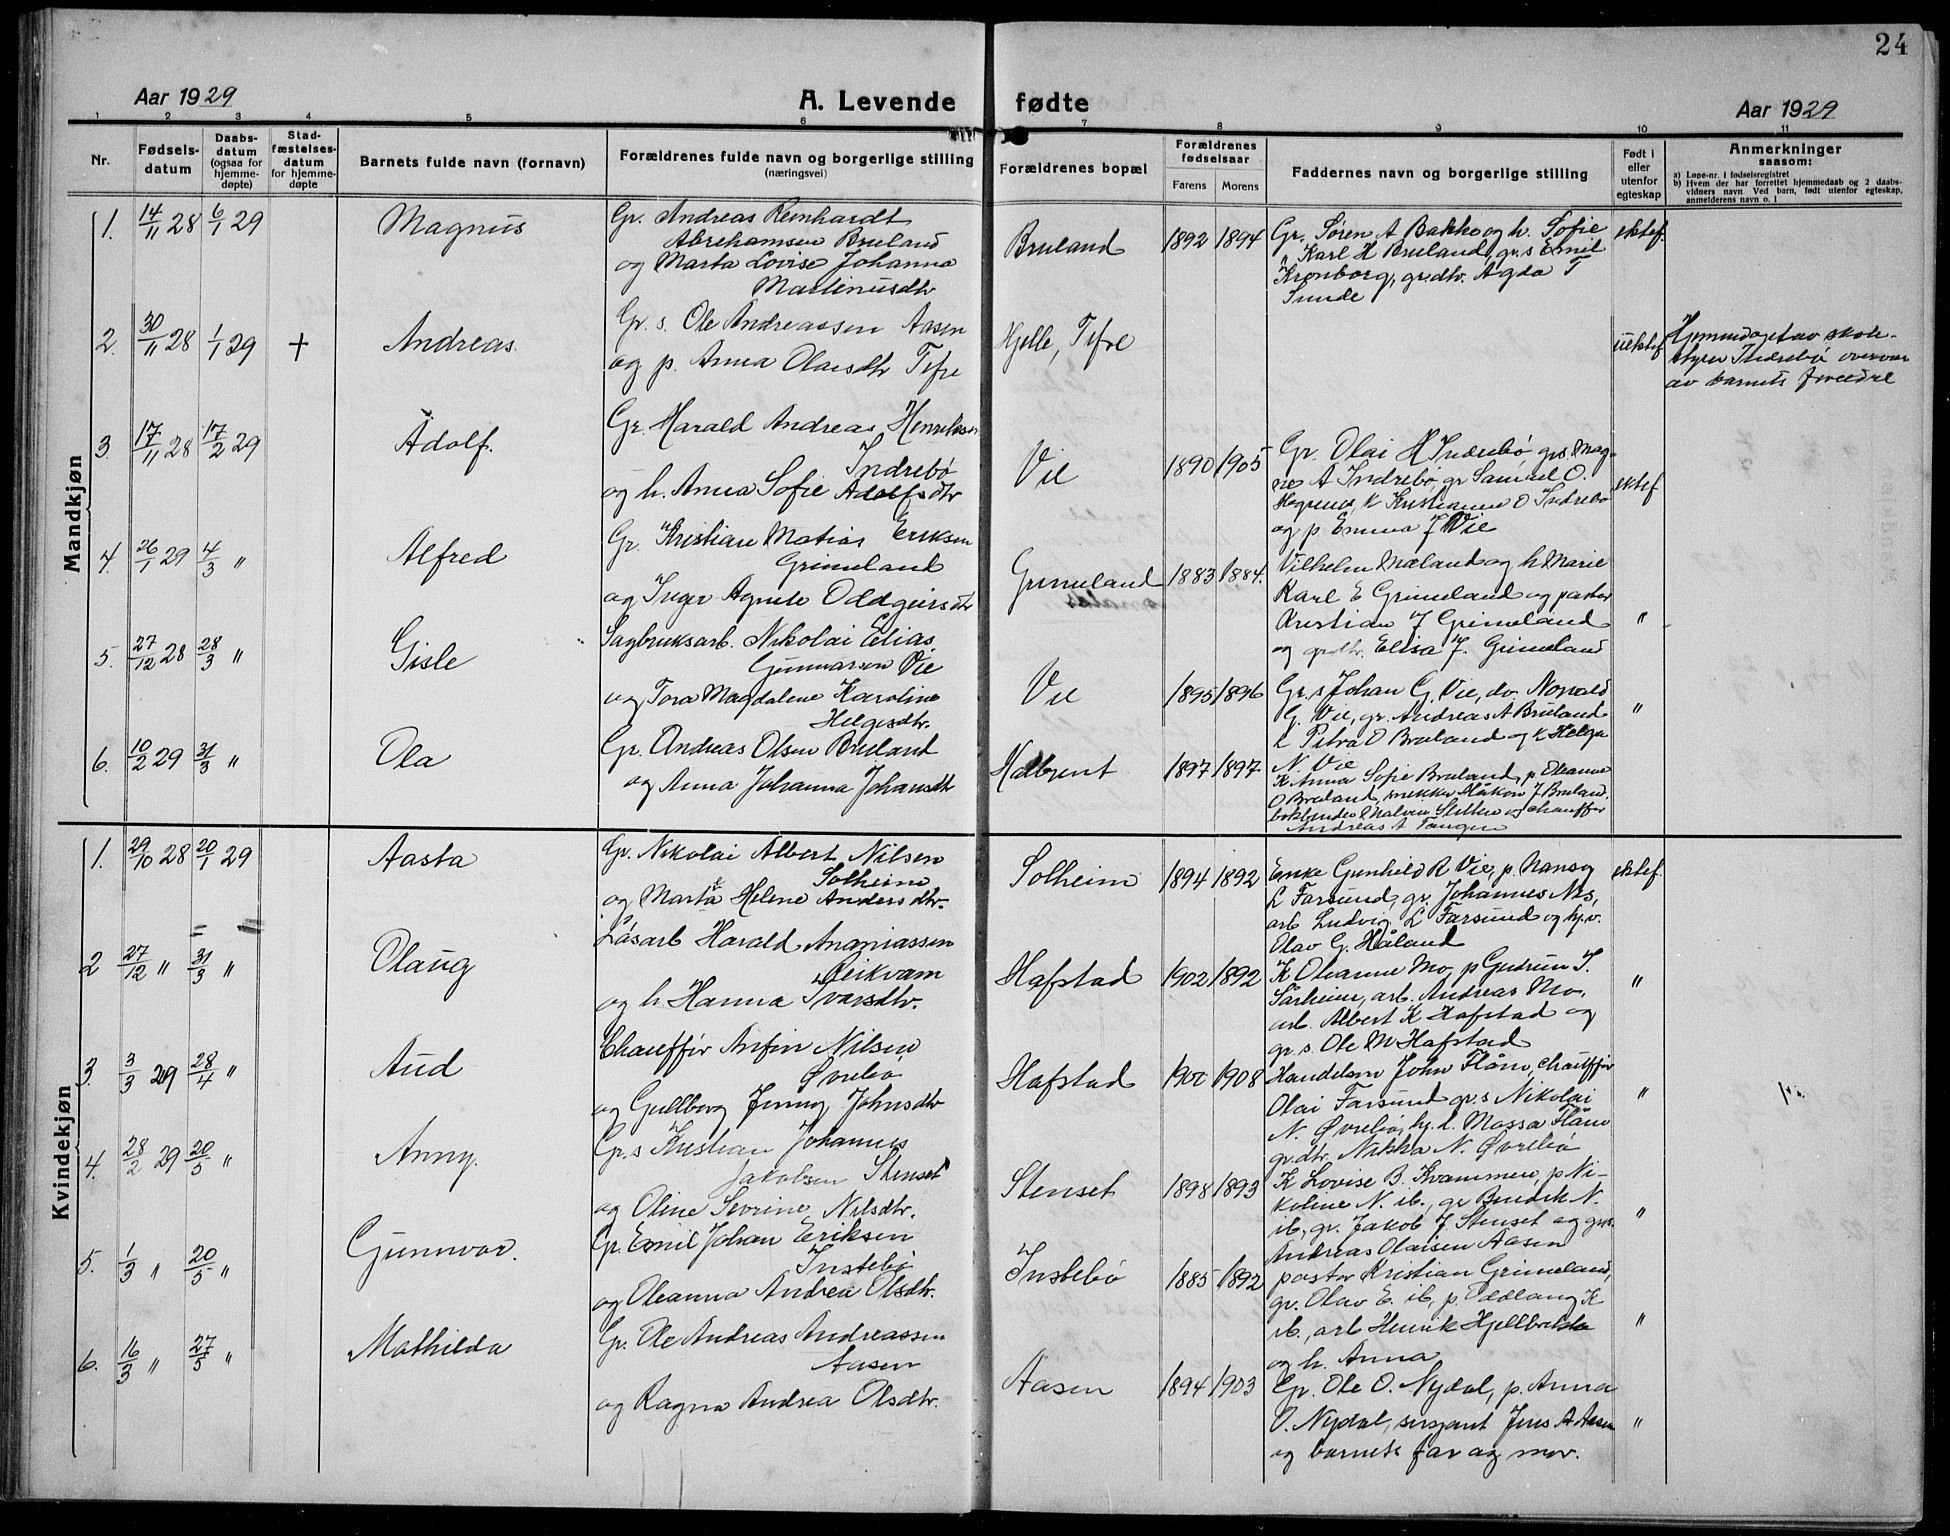 24
Aar 1929
A. Levende fødte
Aar 1929
1 2 3 4 5 6 7 8 9 10 11
Nr.
Fødsels-
datum
Daabs-
datum
(ogsaa for
hjemme-
døpte)
Stad-
fæstelses-
datum
for hjemme-
døpte
Barnets fulde navn (fornavn)
Forældrenes fulde navn og borgerlige stilling
(næringsvei)
Forældrenes bopæl
Forældrenes
fødselsaar
Farens
Morens
Faddernes navn og borgerlige stilling
Født i
eller
utenfor
egteskap
Anmerkninger
saasom:
a) Løpe-nr. i fødselsregistret
b) Hvem der har forrettet hjemmedaab og 2 daabs-
vidners navn Ved barn, født utenfor egteskap,
anmelderens navn o. l
Mandkjøn
1. 14/11 28 6/1 29 Magnus
Gr. Andreas Reinhardt
Abrehamsen Bruland
og Marta Lovise Johanna
Martinusdtr
Bruland 1892 1894
Gr. Søren A Bakke og h. Sofie
" Karl H Bruland, gr.s Emil
Kronborg, gr.dtr. Agda T
Sunde
ektef.
2. 30/11 28 1/1 29 + Andreas
Gr. s. Ole Andreassen Aasen
og p. Anna Olaisdtr Tefre
Hjelle, Tefre
uektef
Hjemmedøpt av skole-
styrer Indrebø overvær
av barnets foreldre
3. 17/11 28 17/2 29 Adolf.
Gr. Harald Andreas Henriksen
Indrebø
og h. Anna Sofie Adolfsdtr
Vie 1890 1905
Gr. Olai H Indrebø, grs Mag-
nes A Indrebø, gr Samuel O.
K Kristianne O Indrebø
og p Emma J Vie
ektef
4. 26/1 29 4/3 " Alfred
Gr. Kristian Matias Eriksen
Grimeland
og Inger Agnete Oddgeirsdtr
Grimeland 1883 1884.
Vilhelm Mæland og h Marie
Karl E Grimeland og pastor
Kristian J Grimeland
og grdtr. Elisa J. Grimeland
"
5. 27/12 28 28/3 " Gisle
Sagbruksarb. Nikolai Elias
Gunnarson Vie
og Tora Magdalene Karoline
Helgesdtr.
Vie 1895 1896
Gr. s Johan G. Vie, do. Norvald
G. Vie, gr. Andreas A Bruland
k Petra O Bruland og k Helga
N. Vie
"
6. 10/2 29 31/3 " Ola
Gr. Andreas Olsen Bruland
og Anna Johanna Johansdtr
Halbrent 1897 1897
K Anna Sofie Bruland, p. Oleanne
O Bruland, snekker Håkon J Bruland,
bokbinder Malvin Sletten og chauffør
Andreas A Tangen
Kvindekjøn
1. 29/10 28 20/1 29 Aasta
Gr. Nikolai Albert Nilsen
Solheim
og Marta Helene Andersdtr.
Solheim 1894 1892
Enke Gunhild R Vie, p. Nansy
L Farsund, gr. Johannes Nes,
arb Ludvig L Farsund og hj.v.
Olav G. Håland
ektef.
2 27/12 " 31/3 " Olaug
Løsarb Harald Ananiassen
Leikvam
og h. Hanna Ivarsdtr.
Hafstad 1902 1892
K Oleanne Mo, p Gudrun S.
Sårheim, arb. Andreas Mo,
arb. Albert K Hafstad og
gr. s. Ole M Hafstad
"
3. 3/3 29 28/4 " Aud
Chauffør Anfin Nilsen
Øvrebø
og Gullborg Jenny Johnsdtr
Hafstad 1902 1908
Handelsm John Flåm, chauffør
Olai Farsund gr.s Nikolai
N. Øvrebø, hj.l. Massa Flåm
gr.dtr. Nikka N. Øvrebø
"
4. 28/2 29 20/5 " Anny.
Gr. s Kristian Johannes
Jakobsen Stenset
og Oline Sevrine Nilsdtr.
Stenset 1898 1893
K Lovise B. Kvammen, p Ni-
koline N. ib., gr Bendik N.
ib., gr. Jakob J. Stenset og grs.
Andreas Olaisen Aasen
"
5. 1/3 " 20/5 " Gunnvor.
Gr. Emil Johan Eriksen
Instebø
og Oleanna Andrea Olsdtr.
Instebø 1885 1892
pastor Kristian Grimeland,
gr. Olav E. ib, p. Oddlaug K
ib., arb Henrik Hjellbrekke
og h. Anna
"
6. 16/3 " 27/5 " Mathilda
Gr. Ole Andreas Andreassen
Aasen
og Ragna Andrea Olsdtr.
Aasen 1894 1903
Gr. Ole O. Nydal, p. Anna
O. Nydal, sersjant Jens A Aasen
og barnets far og mor.
"